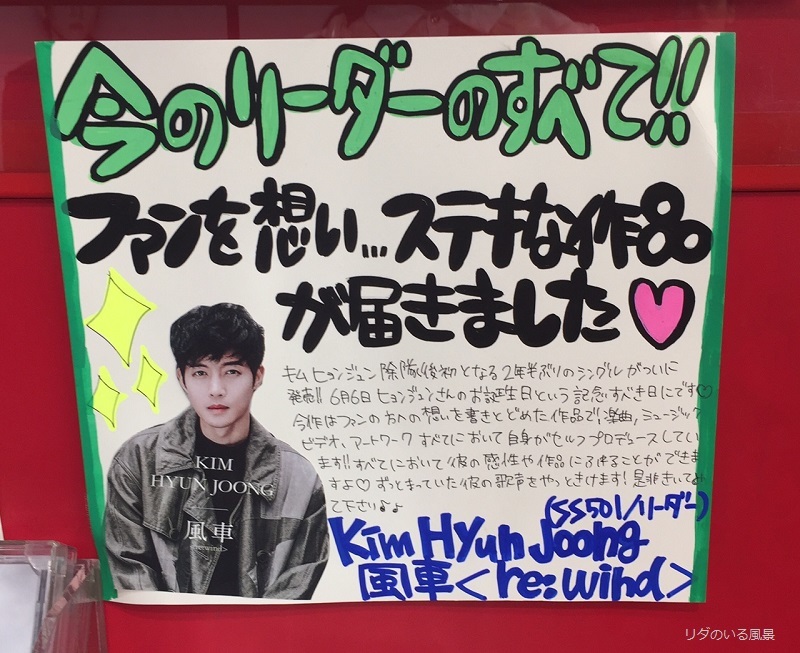 今のリーダーのすべて!!
ファンを想い…ステキな作品
が届きました♡
キム ヒョンジュン 除隊後初となる2年半ぶりのシングルがついに
発売!! 6月6日 ヒョンジュンさんのお誕生日という記念すべき日にです♡
今作はファンの方への想いを書きとどめた作品で、楽曲、ミュージック
ビデオ、アートワーク すべてにおいて自身がセルフプロデュースしてい
ます!! すべてにおいて彼の感性や作品にふれることができま
すよ♡ ずっとまっていた彼の歌声をやっときけます! 是非きいてみ
て下さい♪♪
(SS501/リーダー)
Kim Hyun Joong
風車<re:wind>
KIM
HYUN JOONG
風車
<re:wind>
リダのいる風景